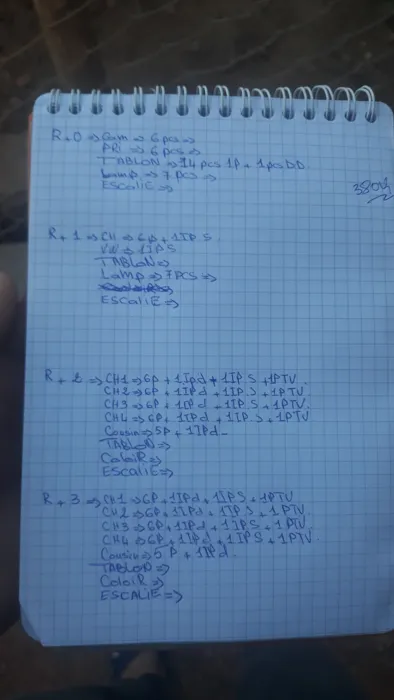 R+0 => Cam => 6 pcs =>
PRi => 6 pcs =>
TABLON => 14 pcs 1P + 1 pcs DD
Lamp => 7 PCS =>
ESCALiE =>
R+1 => CH => 6P + 1IP S.
=> 1IPS
TABLON =>
Lamp => 7PCS =>
ESCALiE =>
R+2 => CH1 => 6P + 1IPd + 1IPS + 1PTV.
CH2 => 6P + 1IPd + 1IPS + 1PTV.
CH3 => 6P + 1IPd + 1IPS + 1PTV.
CH4 => 6P + 1IPd + 1IPS + 1PTV
Cousin => 5P + 1IPd -
TABLON =>
ColoiR =>
ESCALiE =>
R+3 => CH1 => 6P + 1IPd + 1IPS + 1PTV
CH2 => 6P + 1IPd + 1IPS + 1PTV.
CH3 => 6P + 1IPd + 1IPS + 1PTV.
CH4 => 6P + 1IPd + 1IPS + 1PTV.
Cousin => 5P + 1IPd.
TABLON =>
ColoiR =>
ESCALiE =>